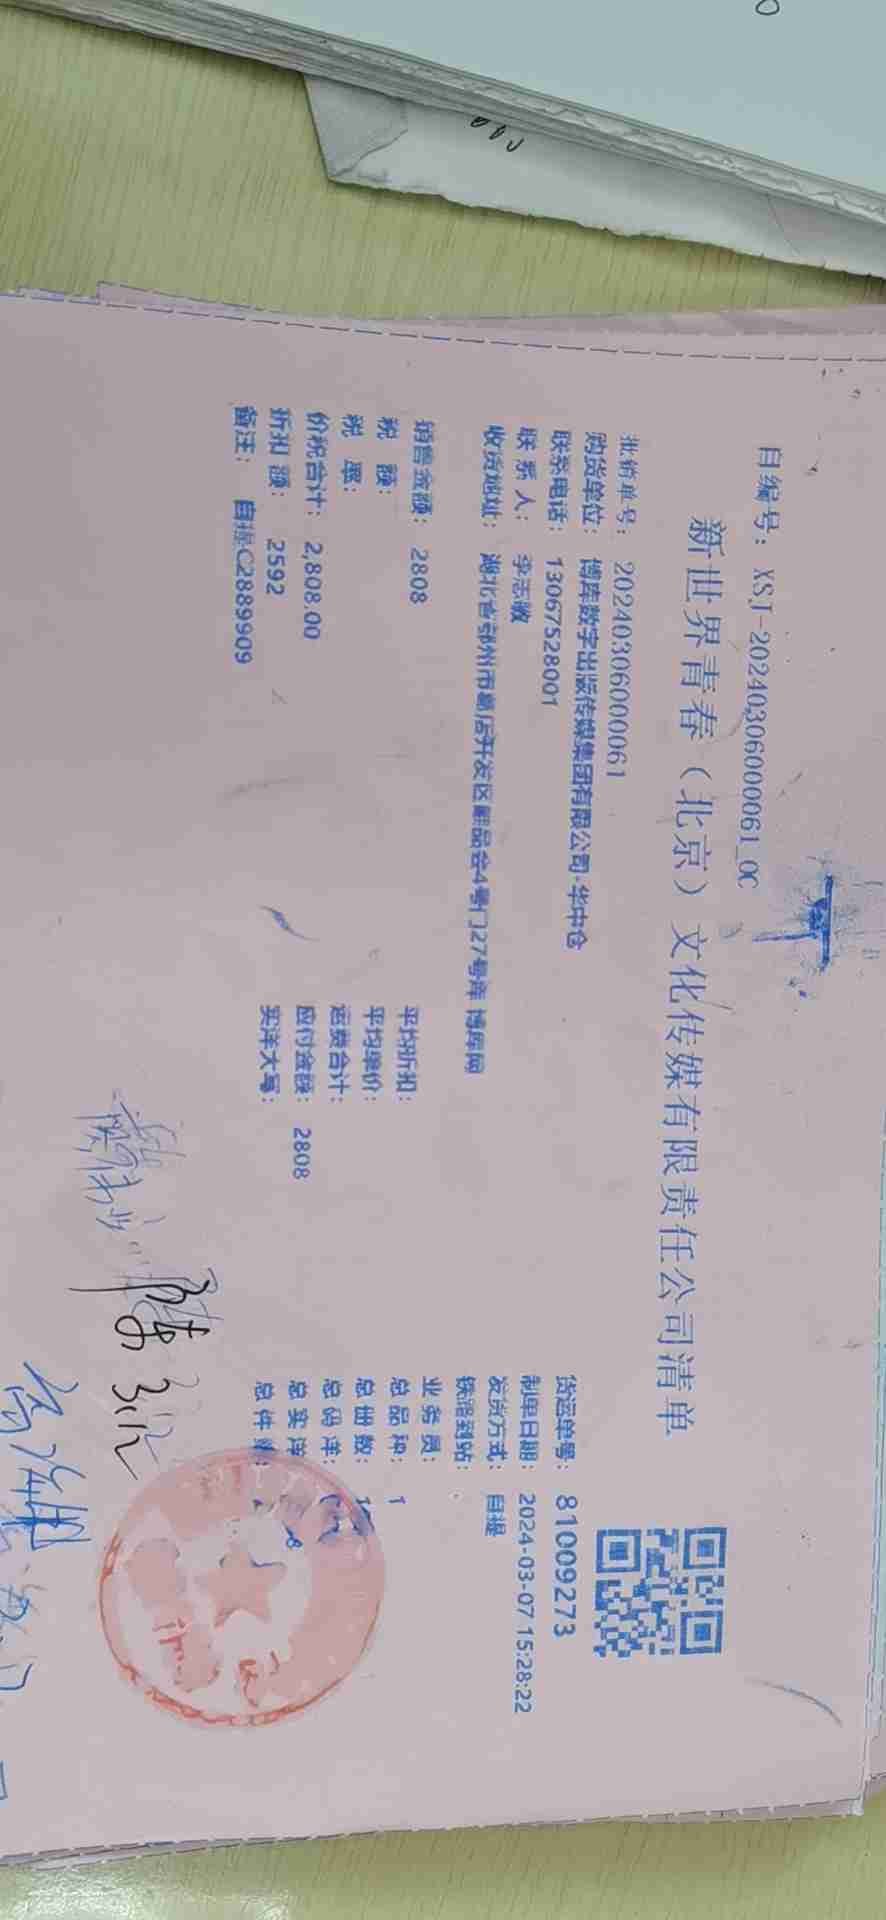 自编号: XSJ-20240306000061_0C
新世界青春（北京）文化传媒有限责任公司清单
批销单号: 20240306000061
货运单号: 81009273
购货单位: 博库数字出版传媒集团有限公司-华中仓
制单日期: 2024-03-07 15:28:22
联系电话: 13067528001
发货方式: 自提
联 系 人: 李志敏
铁路到站:
收货地址: 湖北省鄂州市葛店开发区唯品会4号门27号库 博库网
业务员:
销售金额: 2808
平均折扣:
总品种: 1
税 额:
平均单价:
总册数:
税 率:
运费合计:
总码洋:
价税合计: 2,808.00
应付金额: 2808
总实洋
折扣 额: 2592
实洋大写:
总件
备注: 自提C2889909